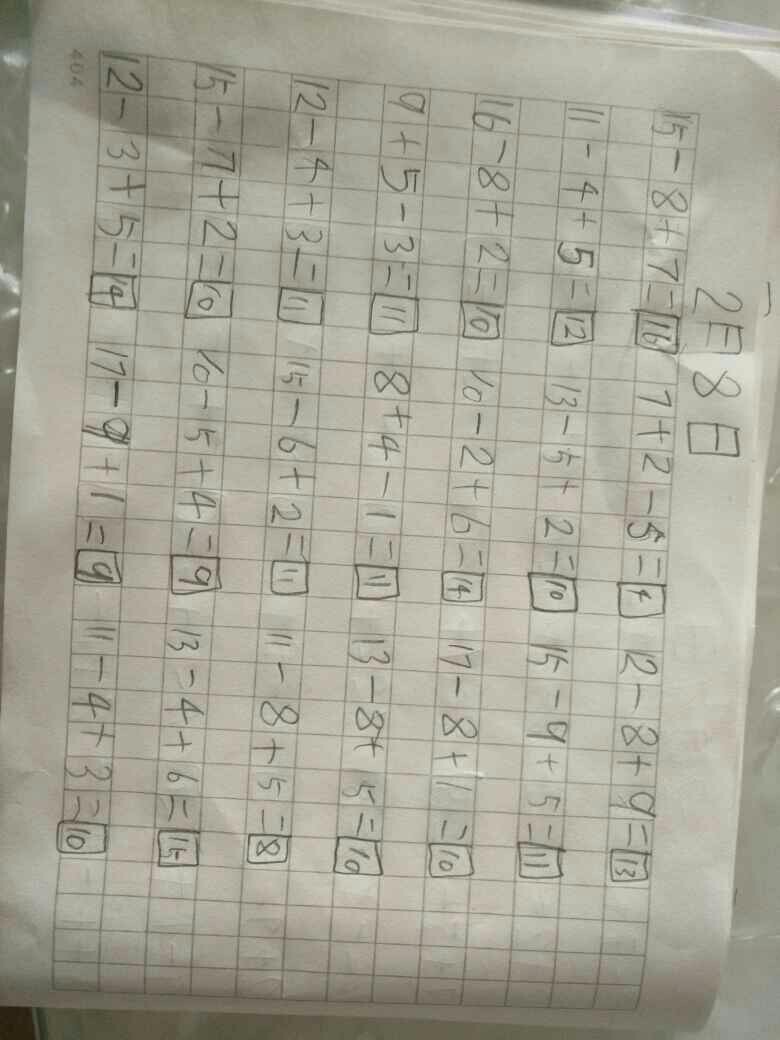 2月8日
15-8+7=16 7+2-5=4 12-8+9=13
11-4+5=12 13-5+2=10 15-9+5=11
16-8+2=10 10-2+6=14 17-8+1=10
9+5-3=11 8+4-1=11 13-8+5=10
12-4+3=11 15-6+2=11 11-8+5=8
15-7+2=10 10-5+4=9 13-4+6=15
12-3+5=14 17-9+1=9 11-4+3=10
404